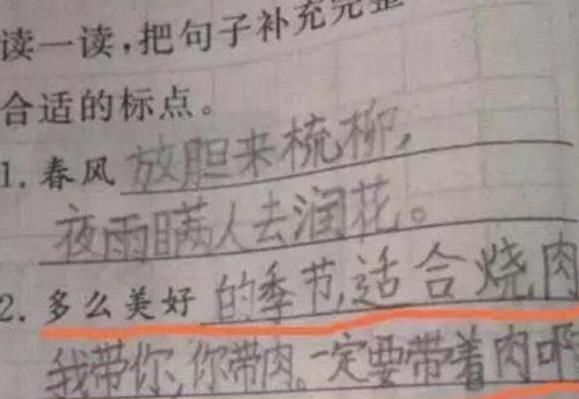 读一读，把句子补充完整
合适的标点。
1. 春风放胆来梳柳，
夜雨瞒人去润花。
2. 多么美好的季节，适合烧肉
我带你，你带肉。一定要带着肉啊